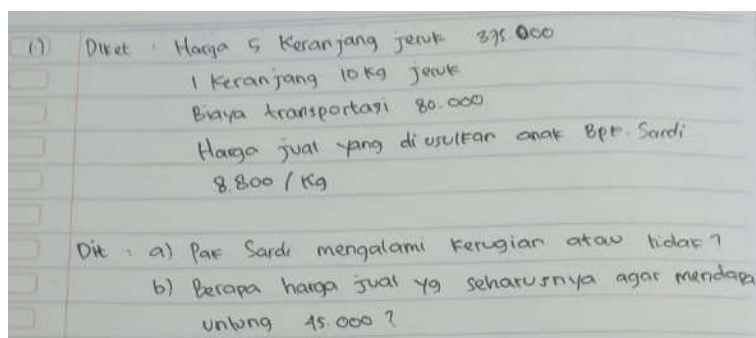 1) Diket : Harga 5 Keranjang jeruk 375.000
1 Keranjang 10 kg jeruk
Biaya transportasi 80.000
Harga jual yang di usulkan anak Bpk. Sardi
8.800 / Kg
Dit : a) Pak Sardi mengalami kerugian atau tidak ?
b) Berapa harga jual yg seharusnya agar mendapa
untung 45.000 ?